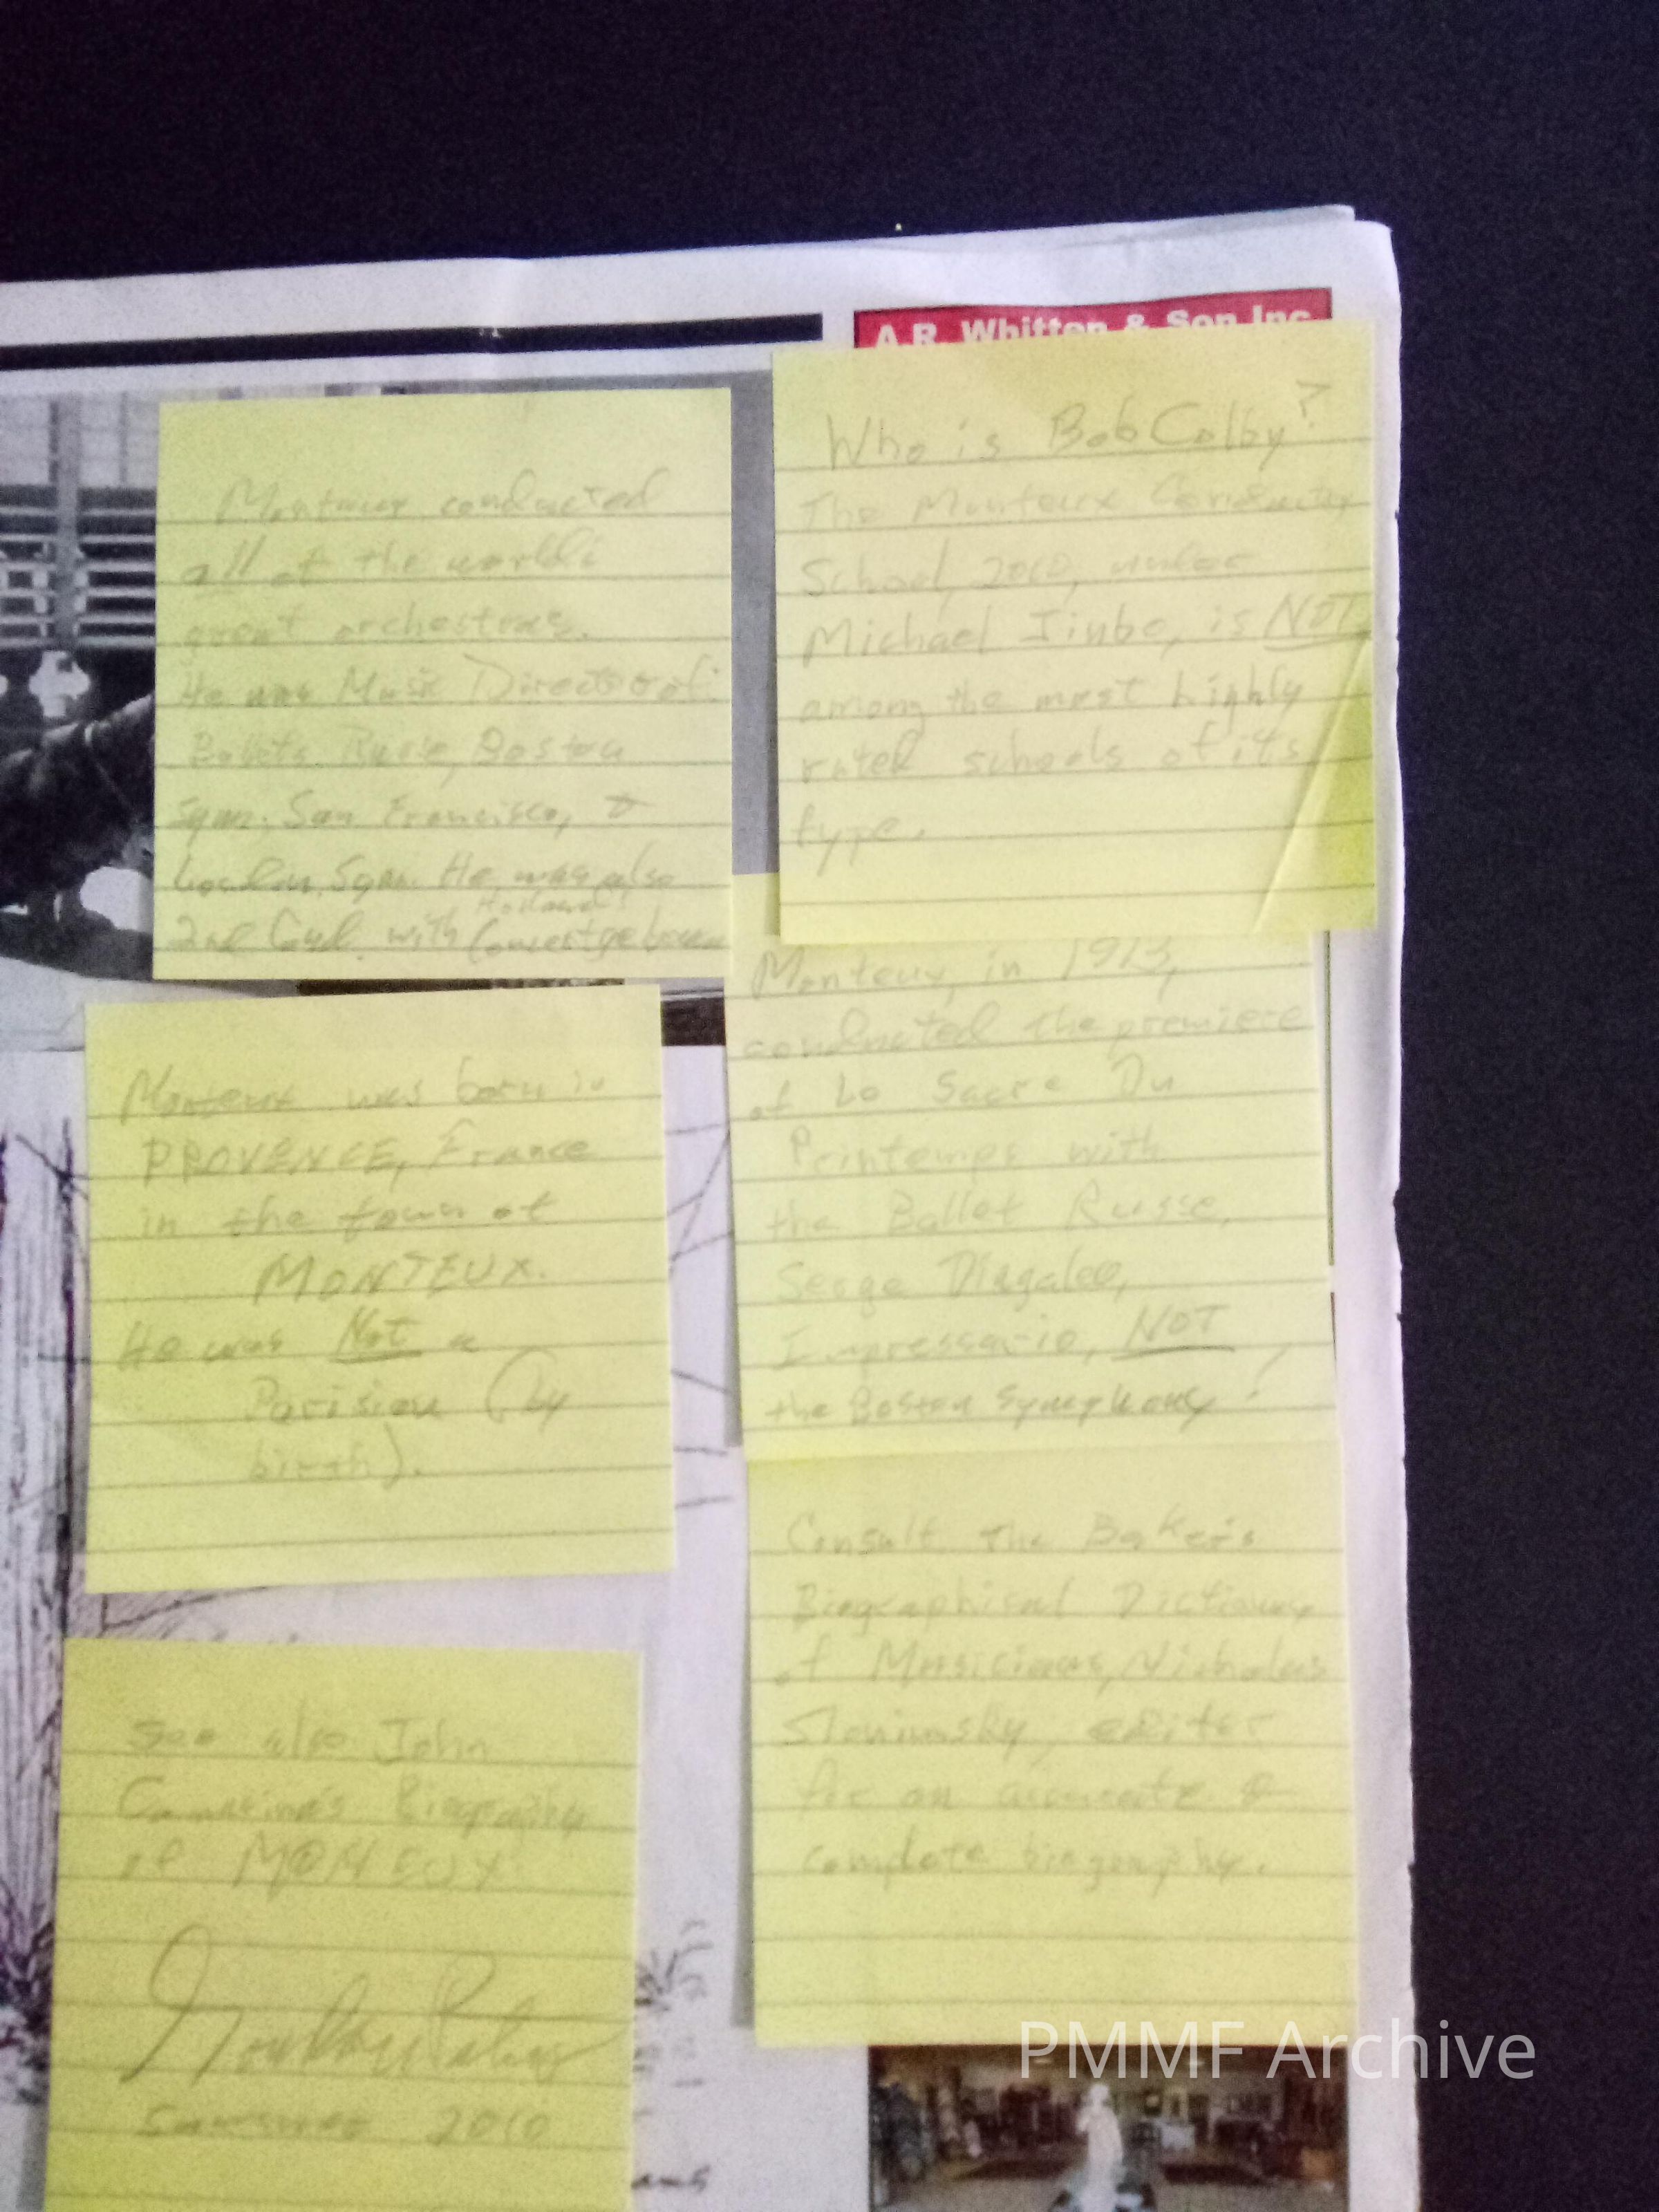 A.R. Whitten & Son Inc
Monteux conducted
all of the world's
great orchestras.
He was Music Director of:
Ballets Russe, Boston
Sym. San Francisco, &
London Sym. He was also
Holland's
2nd Cond. with Concertgebouw
Who is Bob Colby?
The Monteux Conductor
School, 2010, under
Michael Jinbo, is NOT
among the most highly
rated schools of its
type.
Monteux, in 1913,
conducted the premiere
of Le Sacre Du
Printemps with
the Ballet Russe,
Serge
Impressario, NOT
the Boston Symphony!
Monteux was born in
PROVENCE, France
in the town of
MONTEUX.
He was Not a
Parisian (by
birth).
Consult the Baker's
Biographical Dictionary
of Musicians, Nicholas
Slonimsky, editor
for an accurate &
complete biography.
See also John
Biography
of
2010
PMMF Archive